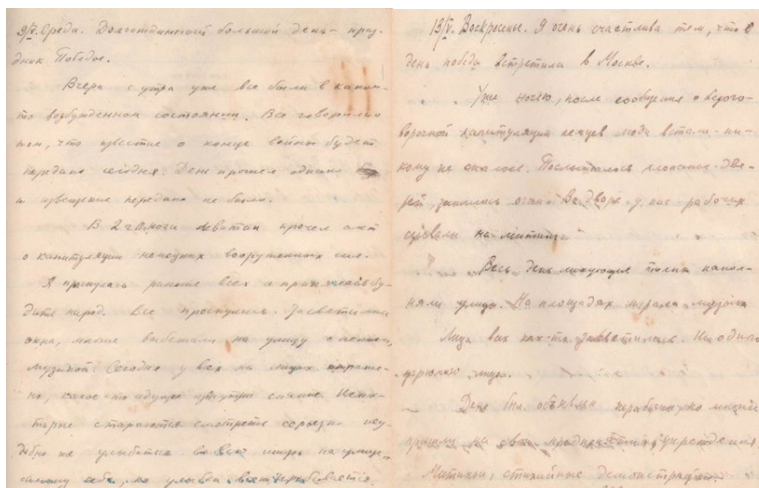 9/V. Среда. Долгожданный большой день - праз-
дник Победы.
Вчера с утра уже все были в каком-
то возбужденном состоянии. Все говорили о
том, что известие о конце войны будет
передано сегодня. День прошел однако
и извещение передано не было.
В 2 ч. 10 м. ночи Левитан прочел акт
о капитуляции немецких вооруженных сил.
Я проснулась раньше всех и принялась бу-
дить народ. Все проснулись. Засветились
окна, многие выбежали на улицу с
музыкой. Сегодня у всех на лицах
но, какое-то идущее изнутри сияние. Неко-
торые стараются смотреть серьезно неу-
добно же улыбаться во весь на улице
самому себе, но улыбка
13/V. Воскресенье. Я очень счастлива тем, что
день победы встретила в Москве.
Уже ночью, после сообщения о безого-
ворочной капитуляции немцев люди встали - ни-
кому не спалось. Послышалось хлопанье две-
рей, зажглись огни. Во дворе у нас рабочих
созвали на митинг.
Весь день ликующие толпы напол-
няли улицы. На площадях играла музыка.
Лица всех как-то засветились. Ни одного
угрюмого лица.
День был объявлен нерабочим, но многие
пришли на свои предприятия, учреждения.
Митинги, стихийные демонстрации.